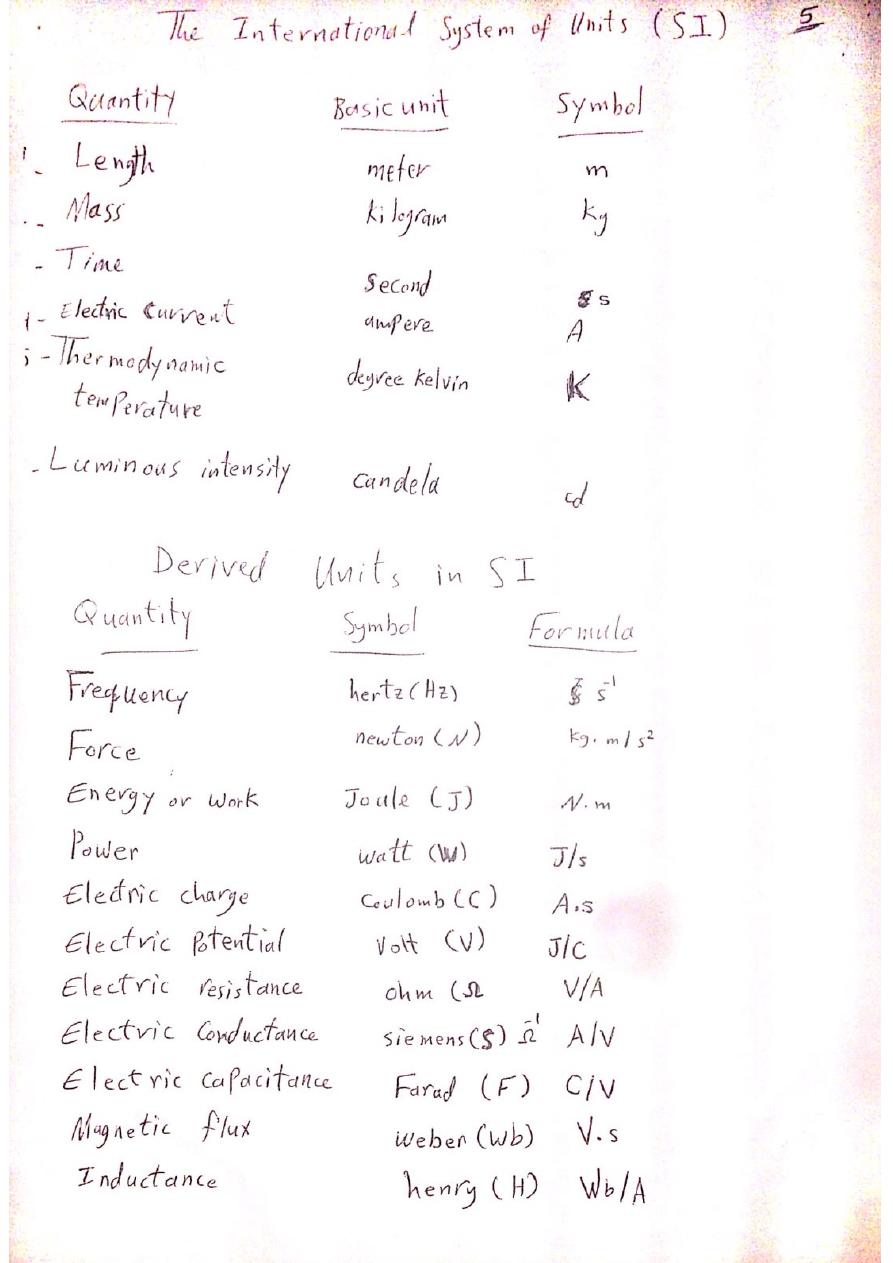 The International System of Units (SI) 5
Quantity Basic unit Symbol
- Length meter m
- Mass kilogram kg
- Time second s
- Electric Current ampere A
- Thermodynamic temperature degree kelvin K
- Luminous intensity candela cd
Derived Units in SI
Quantity Symbol Formula
Frequency hertz (Hz) s⁻¹
Force newton (N) kg. m/s²
Energy or work Joule (J) N.m
Power watt (W) J/s
Electric charge Coulomb (C) A.s
Electric Potential Volt (V) J/C
Electric resistance ohm (Ω V/A
Electric Conductance siemens (S) Ω⁻¹ A/V
Electric Capacitance Farad (F) C/V
Magnetic flux weber (wb) V.s
Inductance henry (H) Wb/A